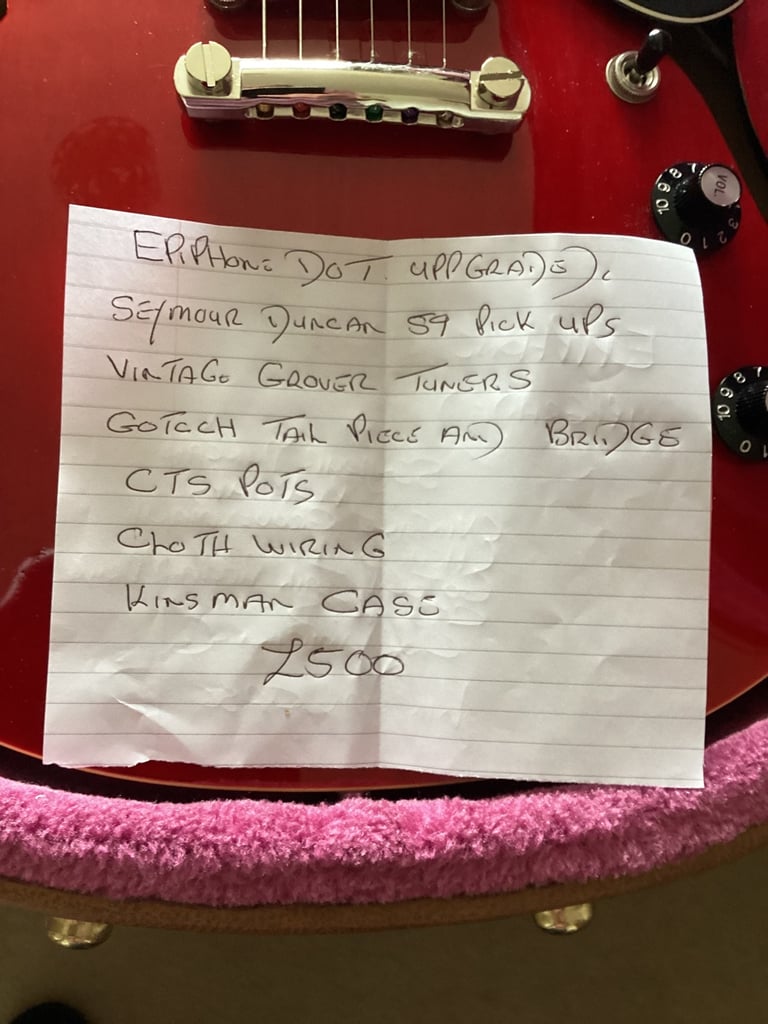 VOL.
10 9 8 3 2 1 0
EPIPHONE DOT UPPGRADED.
SEYMOUR DUNCAN 59 PICK UPS
VINTAGE GROVER TUNERS
GOTCCH TAIL PIECE AND BRIDGE
10 9 8 7 0 1
CTS POTS
CLOTH WIRING
KINSMAN CASE
£500